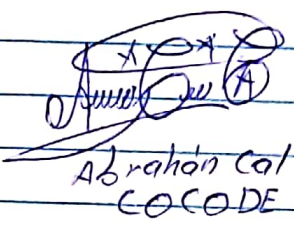 Abrahán Cal
COCODE